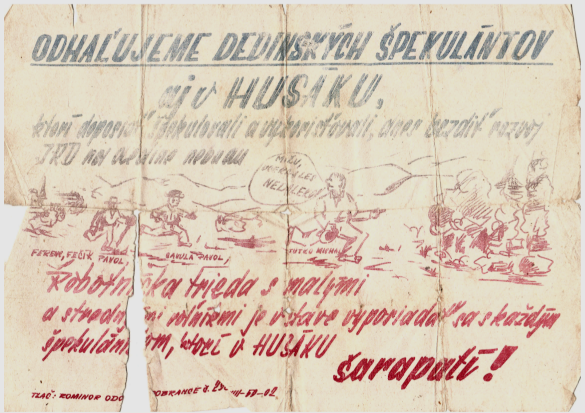 ODHAĽUJEME DEDINSKÝCH ŠPEKULÁNTOV
aj v HUSÁKU,
ktorí doposiaľ špekulovali a vykorisťovali, dnes brzdiť rozvoj
JRD im nebudú
MICU,
NEDALEJ
FERENC, FEČÍK PAVOL
GAVULA PAVOL
TUTKO MICHAL
Robotnícka trieda s malými
a stredn mi roľníkmi je v stave vyporiadať sa s každým
špekulán om, ktorí v HUSÁKU
šarapatí!
TLAČ: ROMINOR ODO OBRANCE č.